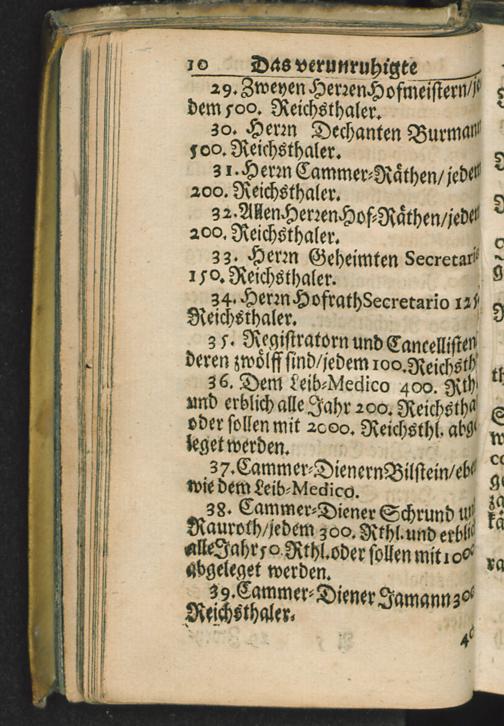 10 Das verunruhigte
29. Zweyen Herren Hofmeistern/je
dem 500. Reichsthaler.
30. Herrn Dechanten Burmann
500. Reichsthaler.
31. Herrn Cammer-Räthen/ jedem
200. Reichsthaler.
32. Allen Herren Hof-Räthen/jedem
200. Reichsthaler.
33. Herrn Geheimten Secretari
150. Reichsthaler.
34. Herrn Hofrath Secretario 125
Reichsthaler.
35. Registratorn und Cancellisten
deren zwölff sind/jedem 100. Reichsth
36. Dem Leib-Medico 400. Rth
und erblich alle Jahr 200. Reichstha
oder sollen mit 2000. Reichsthl. abge
leget werden.
37. Cammer-Dienern Bilstein/ebe
wie dem Leib-Medico.
38. Cammer-Diener Schrund un
Rauroth/jedem 300. Rthl. und erblic
alle Jahr 50. Rthl. oder sollen mit 1000
abgeleget werden.
39. Cammer-Diener Jamann 300
Reichsthaler.
40